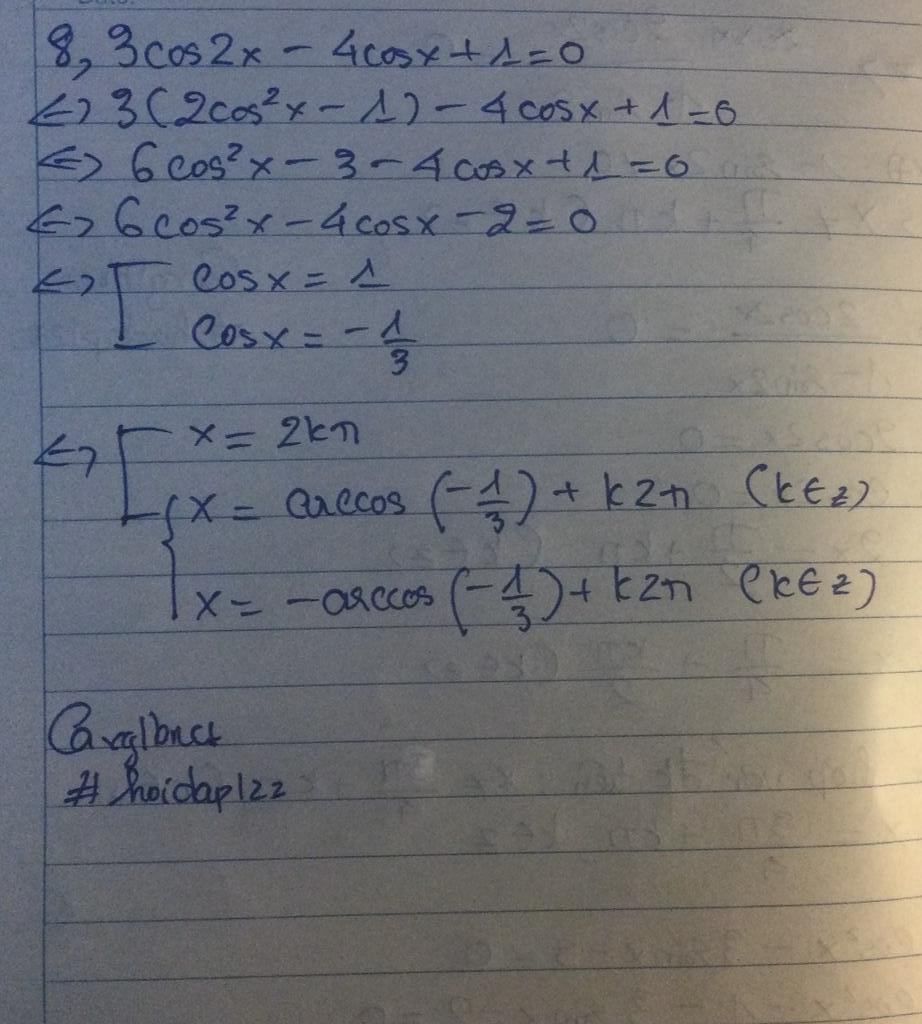 8, 3cos2x - 4cosx + 1 = 0
<=> 3(2cos²x - 1) - 4cosx + 1 = 0
<=> 6cos²x - 3 - 4cosx + 1 = 0
<=> 6cos²x - 4cosx - 2 = 0
<=> [ cosx = 1
cosx = -1/3
<=> [ x = 2kπ
{ x = arccos (-1/3) + k2π (k∈z)
x = -arccos (-1/3) + k2π (k∈z)
# hoidap122